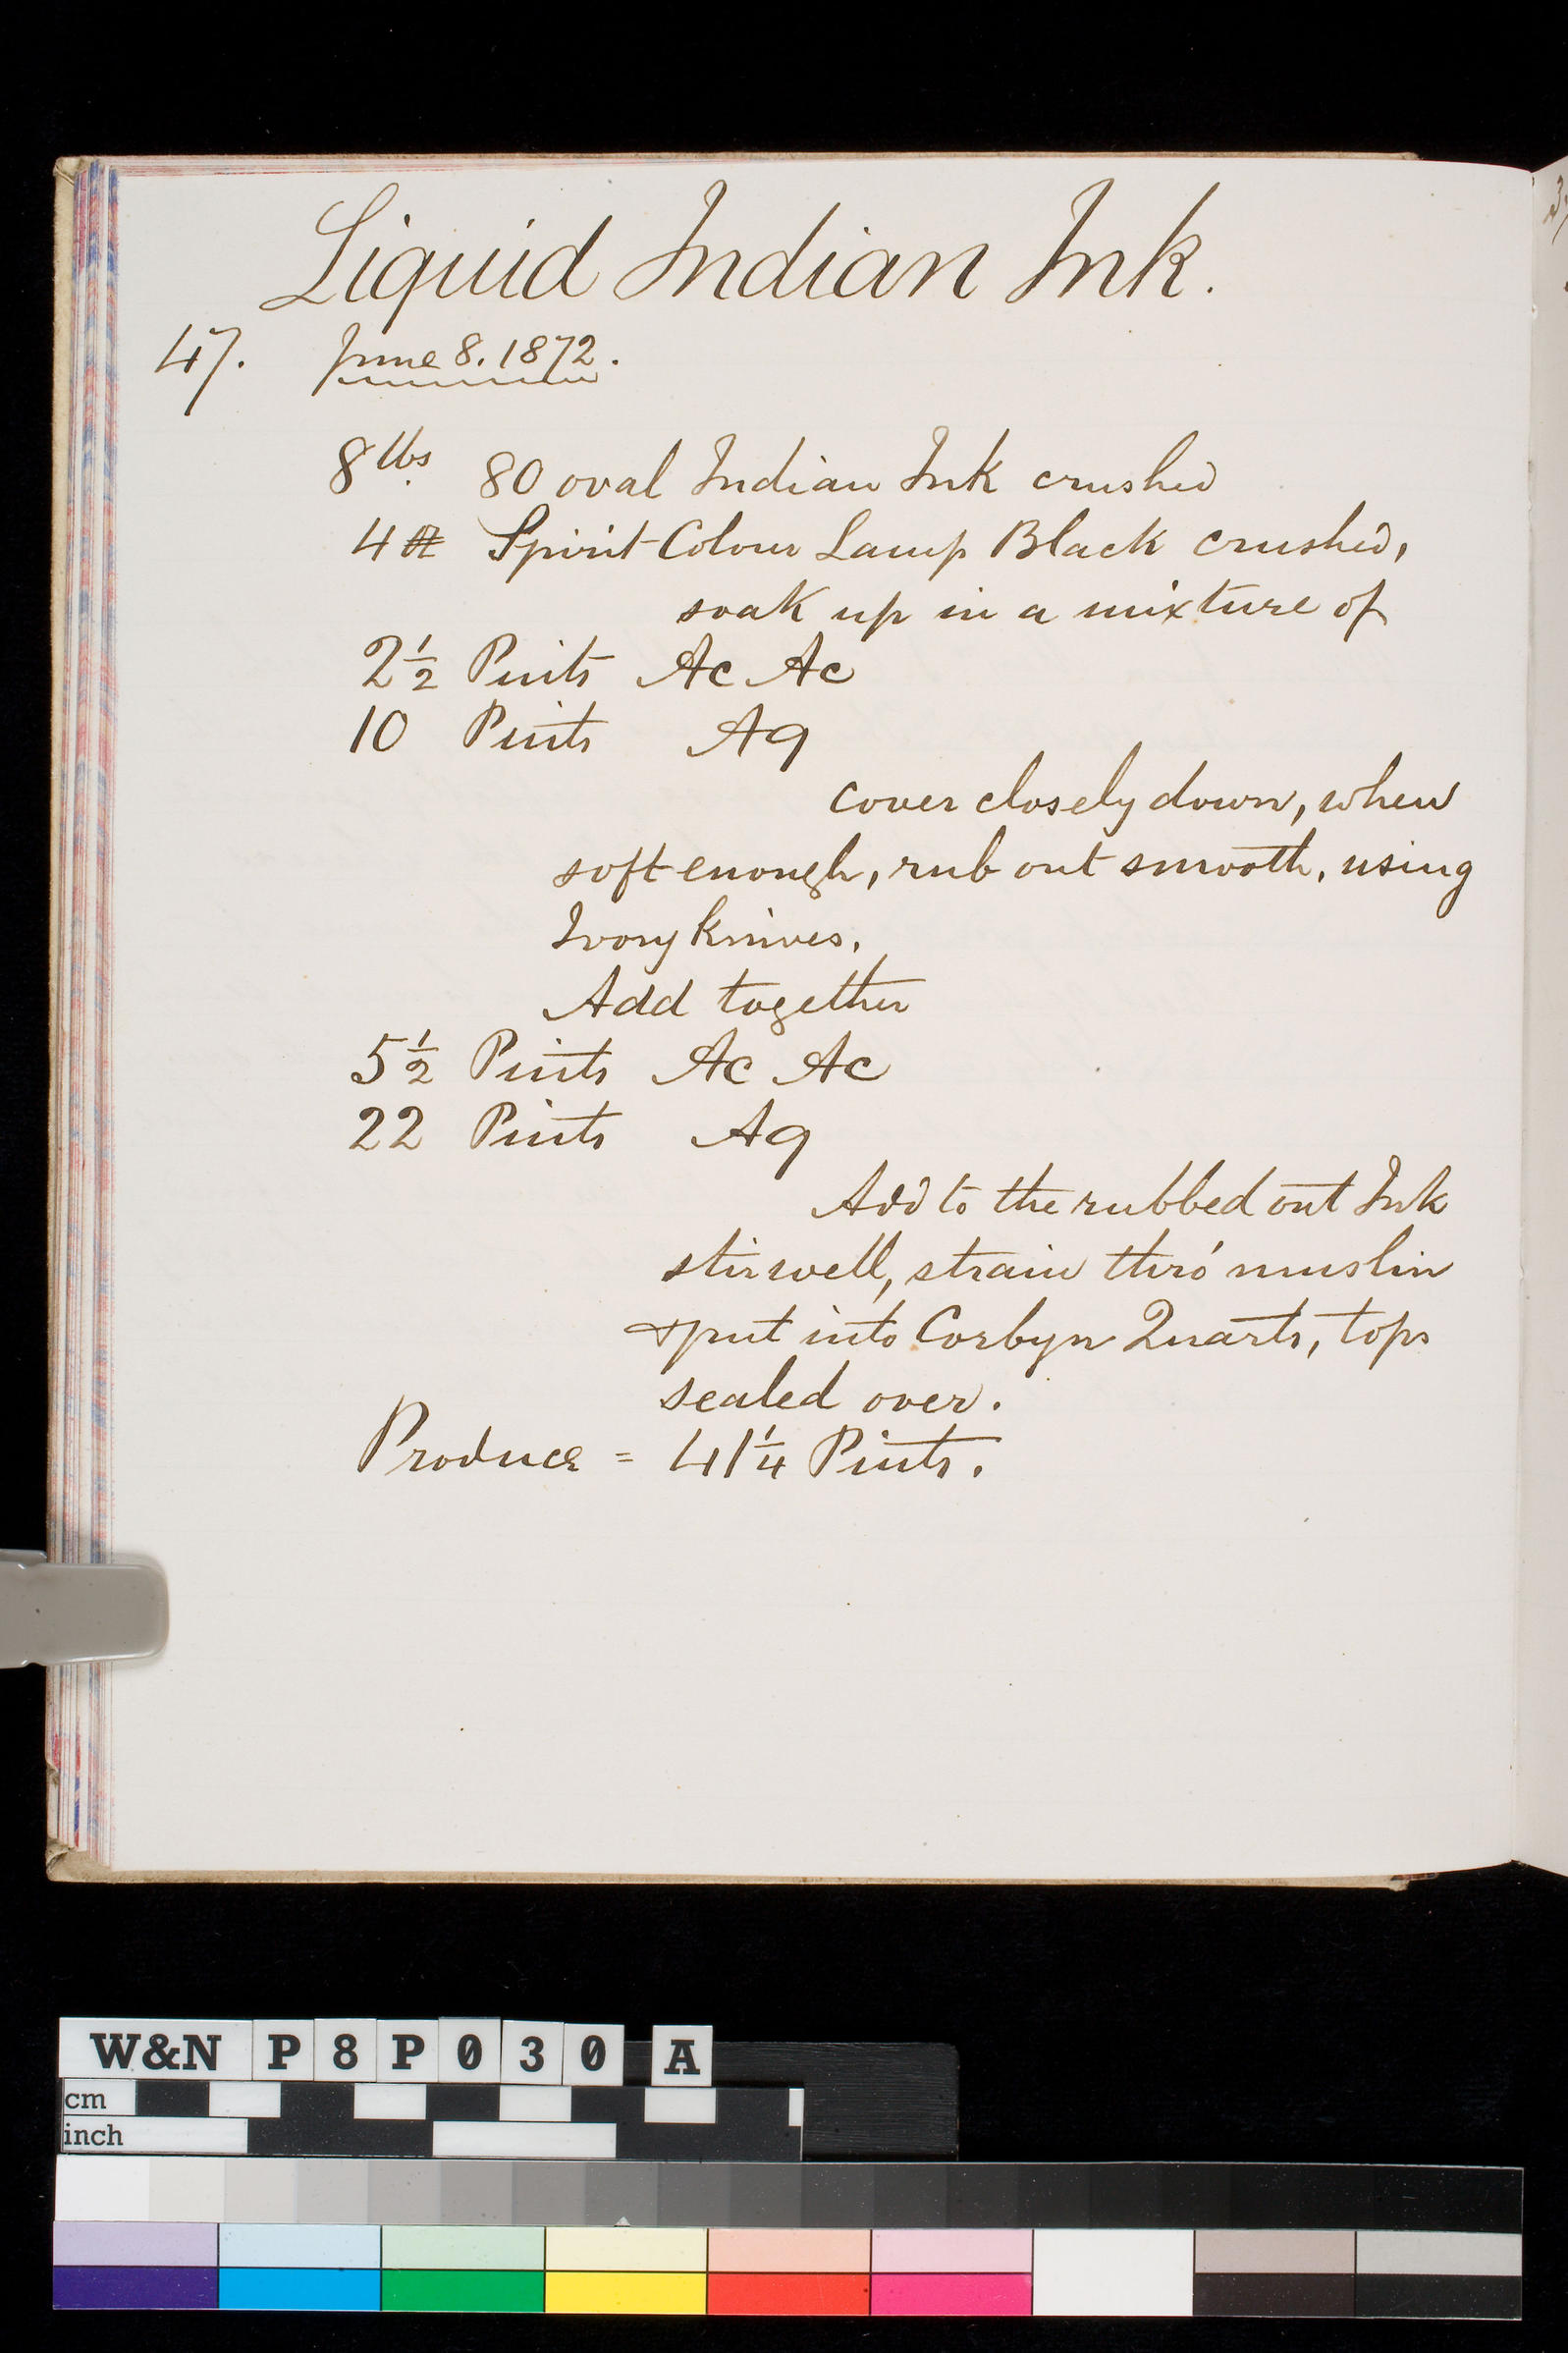 Liquid Indian Ink.
47. June 8. 1872.
8 lbs. 80 oval Indian Ink crushed
4 lb Spirit Colour Lamp Black crushed,
soak up in a mixture of
2½ Pints Ac Ac
10 Pints Aq
cover closely down, when
soft enough, rub out smooth, using
Ivory knives.
Add together
5½ Pints Ac Ac
22 Pints Aq
Add to the rubbed out Ink
stir well, strain thro' muslin
& put into Corbyn Quarts, tops
sealed over.
Produce = 41¼ Pints.
W&N P8P030 A
cm
inch